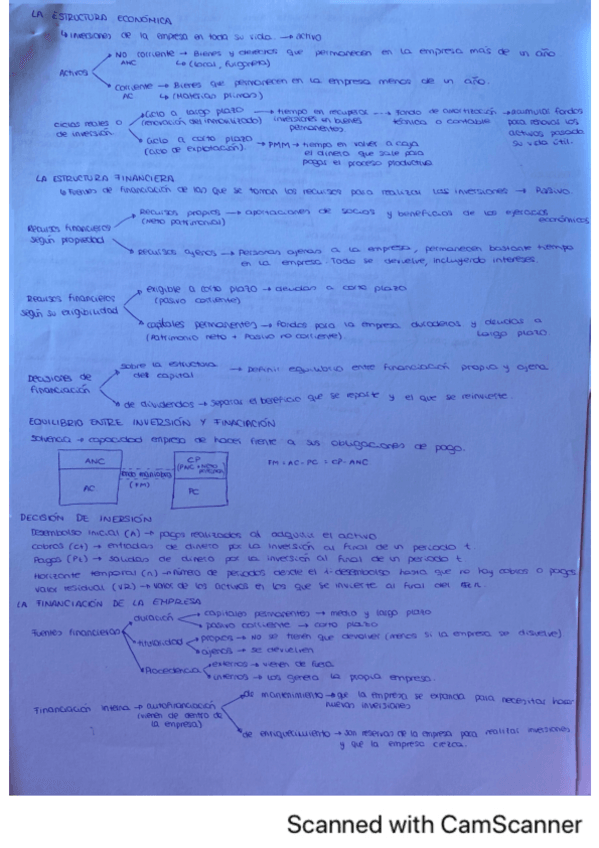 LA ESTRUCTURA ECONÓMICA
↳ inversiones de la empresa en toda su vida. → activo
Activos
NO corriente → Bienes y derechos que permanecen en la empresa más de un año
ANC ↳ (local, furgoneta)
corriente → Bienes que permanecen en la empresa menos de un año.
AC ↳ (Materias primas)
ciclos reales o de inversión
ciclo a largo plazo (renovación del inmovilizado) → tiempo en recuperar inversiones en bienes permanentes → fondo de amortización técnica o contable → acumular fondos para renovar los activos pasada su vida útil.
ciclo a corto plazo (ciclo de explotación). → PMM → tiempo en volver a caja el dinero que sale para pagar el proceso productivo
LA ESTRUCTURA FINANCIERA
↳ Fuentes de financiación de las que se toman los recursos para realizar las inversiones → Pasivo.
Recursos financieros según propiedad
Recursos propios → aportaciones de socios y beneficios de los ejercicios económicos
(Neto patrimonial)
Recursos ajenos → Personas ajenas a la empresa, permanecen bastante tiempo
en la empresa. Todo se devuelve, incluyendo intereses.
Recursos financieros según su exigibilidad
exigible a corto plazo → deudas a corto plazo
(pasivo corriente)
capitales permanentes → fondos para la empresa duraderos y deudas a largo plazo
(Patrimonio neto + Pasivo no corriente).
Decisiones de financiación
sobre la estructura del capital → Definir equilibrio entre financiación propia y ajena
de dividendos → separar el beneficio que se reparte y el que se reinvierte.
EQUILIBRIO ENTRE INVERSIÓN Y FINACIACIÓN
Solvencia → capacidad empresa de hacer frente a sus obligaciones de pago.
ANC
AC
(FM)
CP
PC
FM = AC - PC = CP - ANC
DECISIÓN DE INERSIÓN
Desembolso inicial (A) → pagos realizados al adquirir el activo
cobros (Ct) → entradas de dinero por la inversión al final de un periodo t
Pagos (Pt) → salidas de dinero por la inversión al final de un periodo t
Horizonte temporal (n) → número de periodos desde el desembolso hasta que no hay cobros o pagos
valor residual (VR) → valor de los activos en los que se invierte al final del
LA FINANCIACIÓN DE LA EMPRESA
Fuentes financieras
duración
capitales permanentes → medio y largo plazo
pasivo corriente → corto plazo
titularidad
propios → no se tienen que devolver (menos si la empresa se disuelve)
ajenos → se devuelven
Procedencia
externos → vienen de fuera
internos → los genera la propia empresa.
Financiación interna → autofinanciación
(vienen de dentro de la empresa)
de mantenimiento → que la empresa se expanda para necesitar hacer nuevas inversiones
de enriquecimiento → son reservas de la empresa para realizar inversiones
y que la empresa crezca.
Scanned with CamScanner